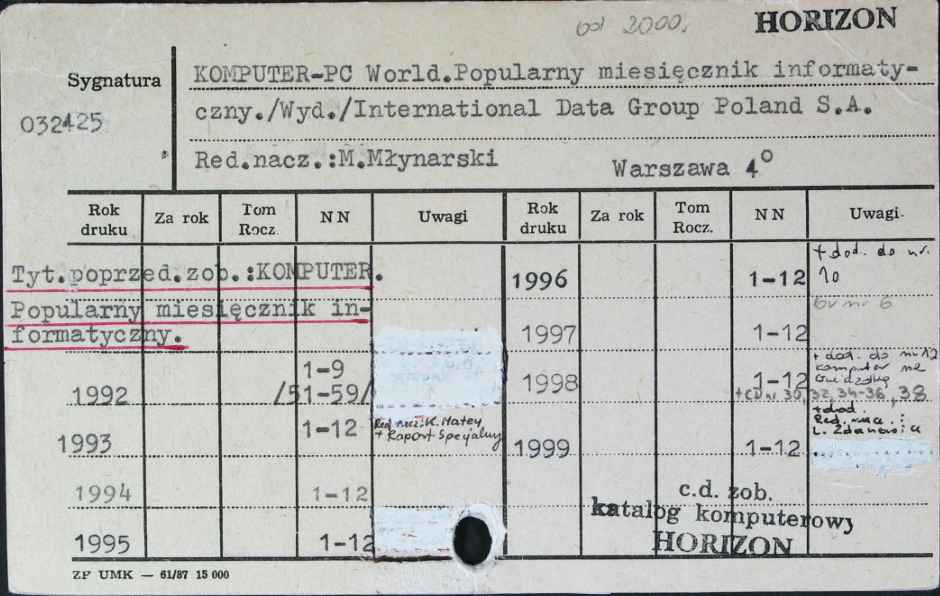 od 2000.
HORIZON
Sygnatura
032425
KOMPUTER-PC World.Popularny miesięcznik informaty-
czny./Wyd./International Data Group Poland S.A.
Red.nacz.:M.Młynarski
Warszawa 4°
Rok druku Za rok Tom Rocz. NN Uwagi Rok druku Za rok Tom Rocz. NN Uwagi
Tyt.poprzed.zob.:KOMPUTER.
Popularny miesięcznik in-
formatyczny.
1992 1-9
/51-59/
1993 1-12 Red. nacz.: K. Matey
+ Raport Specjalny
1994 1-12
1995 1-12
1996 1-12 + dod. do nr.
10
1997 1-12 br nr 6
1998 1-12 + dod. do nr 12
komputer
+CD nr 30, 32, 34-36, 38
1999 1-12 + dod.
Red. :
c.d. zob.
katalog komputerowy
HORIZON
ZP UMK — 61/87 15 000